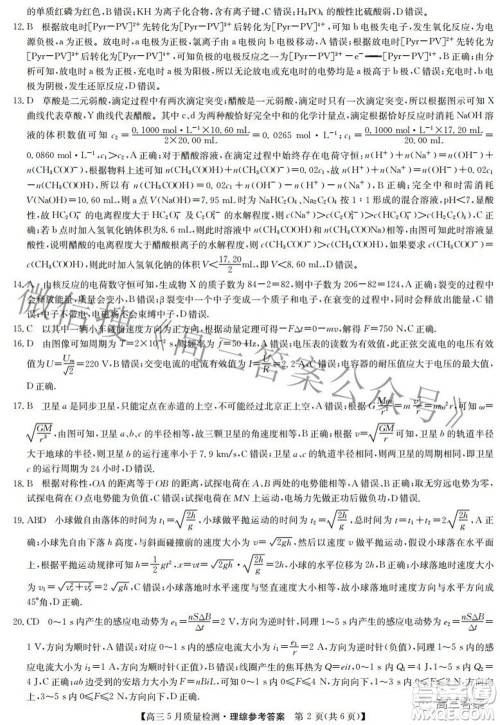 的单质红磷为红色,B错误;KH为离子化合物,含有离子键,C错误;H₃PO₄的酸性比硫酸弱,D错误。
12. B 根据放电时[Pyr-PV]²⁺先转化为[Pyr-PV]⁺后转化为[Pyr-PV],可知b电极失电子,发生氧化反应,为电
源负极,a为正极。放电时,a电极为正极,氯离子由a电极向b电极移动,A错误;根据放电时[Pyr-PV]²⁺先转化为
[Pyr-PV]⁺后转化为[Pyr-PV],可知负极的电极反应之一为[Pyr-PV]⁺-e⁻══[Pyr-PV]²⁺,B正确;由分
析可知,放电时a极为正极,充电时a极为阳极,所以无论放电或充电时的电势均是a极高于b极,C错误;充电时,b电
极为阴极,发生还原反应,D错误。
13. D 草酸是二元弱酸,滴定过程中有两次滴定突变;醋酸是一元弱酸,滴定时只有一次滴定突变,所以根据图示可知X
曲线代表草酸,Y曲线代表醋酸。其中c、d为两种酸恰好完全中和的化学计量点,滴定根据恰好反应时消耗NaOH溶
液的体积数值可知c₂=0.1000 mol·L⁻¹×10.60 mL/2×20.00 mL=0.0265 mol·L⁻¹;c₁=0.1000 mol·L⁻¹×17.20 mL/20.00 mL=
0.0860 mol·L⁻¹,c₁>c₂,A正确;对于醋酸溶液,在滴定过程中始终存在电荷守恒:n(H⁺)+n(Na⁺)=n(OH⁻)+
n(CH₃COO⁻),根据物料上述可知n(CH₃COOH)+n(CH₃COO⁻)=0.02c₁,故n(H⁺)+n(Na⁺)=n(OH⁻)+0.02c₁
-n(CH₃COOH),所以有n(CH₃COOH)=0.02c₁+n(OH⁻)-n(H⁺)-n(Na⁺),B正确;完全中和时需消耗
V(NaOH)=10.60 mL,则a点V(NaOH)=7.95 mL时为NaHC₂O₄、Na₂C₂O₄按1:1形成的混合溶液,pH<7,显酸
性,故HC₂O₄⁻的电离程度大于HC₂O₄⁻及C₂O₄²⁻的水解程度,则c(Na⁺)>c(C₂O₄²⁻)>c(HC₂O₄⁻)>c(H⁺)>c(H₂C₂O₄),C正
确;若b点时加入氢氧化钠体积为8.6 mL,则此时溶液中CH₃COOH和CH₃COONa相等,由图可知此时溶液显
酸性,说明醋酸的电离程度大于醋酸根离子的水解程度,则c(CH₃COO⁻)>c(CH₃COOH),如果要求c(CH₃COO⁻)=
c(CH₃COOH),则此时加入氢氧化钠的体积V<17.20/2 mL,即V<8.60 mL,D错误。
14. A 由核反应的电荷数守恒可知,生成物X的质子数为84-2=82,则中子数为206-82=124,A正确;裂变的过程中
会释放能量,质量会亏损,B错误;β裂变中一个中子变成一个质子和电子,在衰变的过程中,同时会释放出能量,C错
误;中子不带电,电磁场不会束缚中子,D错误。
15. C 以其中一辆小车碰前速度方向为正方向,根据动量定理可得-FΔt=0-mv,解得F=750 N,C正确。
16. D 由图像可知周期为T=2×10⁻² s,则频率为f=50 Hz,A错误;电压表的读数为有效值,此正弦交流电的电压有效
值为U=Uₘ/√2=220 V,B错误;交变电流的电流有效值为I=U/R=2.2 A,C错误;电容器的耐压值应大于电压的最大值,
D正确。
17. B 卫星a是同步卫星,只能定点在赤道的上空,不可能经过北京正上空,A错误;根据G Mm/r²=m v²/r=mω²r,可知ω=
√(GM/r³),由图可知,卫星a、b、c的半径相等,故三颗卫星的角速度相等,B正确;根据v=√(GM/r),可知卫星b的轨道半径
大于地球的半径,则卫星b的运行速率小于7.9 km/s,C错误;卫星a与卫星c的轨道半径相等,则两卫星的周期相等,即卫星
c的运行周期为24小时,D错误。
18. B 根据对称性,OA的距离等于OB的距离,试探电荷在A、B两处的电势能相等,A错误,B正确;取无穷远电势为零,
试探电荷在O点电势能为负值,C错误;试探电荷在MN上运动,电场力先做正功后做负功,D错误。
19. ABD 小球做自由落体的时间为t₁=√(2h/g),小球做平抛运动的时间为t₂=√(2h/g),总时间为t=t₁+t₂=2√(2h/g),A正
确;小球先自由下落高度h,与斜面碰撞前的速度大小为v=√(2gh),然后以速度v做平抛运动,做平抛运动的高度也为
h,根据平抛运动规律可知h=½gt²,x=vt=√(2gh)·√(2h/g)=2h,小球的水平位移为2h,B正确;小球落地时速度大小
为v₁=√(v₀²+v_y²)=2√(gh),C错误;小球落地时水平速度与竖直速度大小相等,故小球落地时速度方向与水平方向成
45°角,D正确。
20. CD 0~1 s内产生的感应电动势为e₁=nSΔB/Δt=2 V,方向为逆时针,同理1~5 s内产生的感应电动势为e₂=nSΔB/Δt=
1 V,方向为顺时针,A错误;对应0~1 s内的感应电流大小为i₁=e₁/r=2 A,方向为逆时针(负值),同理1~5 s内的感
应电流大小为i₂=1 A,方向为顺时针(正值),B错误;线圈产生的焦耳热为Q=eit,0~1 s内Q₁=4 J,1~5 s内Q₂=4 J,
C正确;ab边受到的安培力大小为F=nBiL,可知0~1 s内0≤F≤4 N,方向向下,1~3 s内0≤F≤2 N,方向向
上,3~5 s内0≤F≤2 N,方向向下,D正确。
【高三5月质量检测·理综参考答案 第2页(共6页)】
微信搜《高三答案公众号》
高三答案